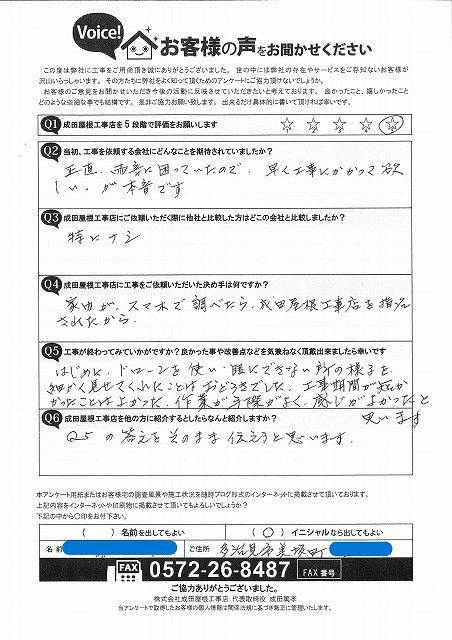 Voice! お客様の声をお聞かせください
この度は弊社に工事をご用命頂き誠にありがとうございました。 世の中には弊社の存在やサービスをご存知ないお客様が
沢山いらっしゃいます。 その方たちに弊社をよく知って頂くためのアンケートにご協力頂けないでしょうか。
お客様のご意見をお聞かせいただき今後の活動に反映させていただきたいと考えております。 良かったこと、嬉しかったこと
どのような些細な事でも結構です。 是非ご協力お願い致します。 出来るだけ具体的に書いて頂ければ幸いです。
Q1 成田屋根工事店を5段階で評価をお願いします
☆ ☆ ☆ ☆ ☆
Q2 当初、工事を依頼する会社にどんなことを期待されていましたか？
正直、雨音に困っていたので、早く工事にかかって欲
しい、が本音です
Q3 成田屋根工事店にご依頼いただく際に他社と比較した方はどこの会社と比較しましたか？
特にナシ
Q4 成田屋根工事店に工事をご依頼いただいた決め手は何ですか？
家内が、スマホで調べたら、成田屋根工事店を指名
されたから、
Q5 工事が終わってみていかがですか？良かった事や改善点などを気兼ねなく頂戴出来ましたら幸いです
はじめに、ドローンを使い、眼にできない所の様子を、
細かく見せてくれたことはおどろきでした、工事期間が短か
かったことはよかった、作業が手際がよく、感じがよかったと
思います
Q6 成田屋根工事店を他の方に紹介するとしたらなんと紹介しますか？
Q5の答えをそのまま伝えると思います、
本アンケート用紙またはお客様宅の調査風景や施工状況を随時ブログ形式のインターネットに掲載させて頂いております。
上記内容をインターネットや印刷物に掲載させて頂いてもよろしいでしょうか？
下記の中から〇印をお付下さい。
（ ）名前を出してもよい （〇）イニシャルなら出してもよい
名前 ご住所 多治見市美坂町
FAX 0572-26-8487 FAX番号
ご協力ありがとうございました。
株式会社成田屋根工事店 代表取締役 成田篤孝
当アンケートで取得したお客様の個人情報は関係法規に基づき厳正に管理いたします。